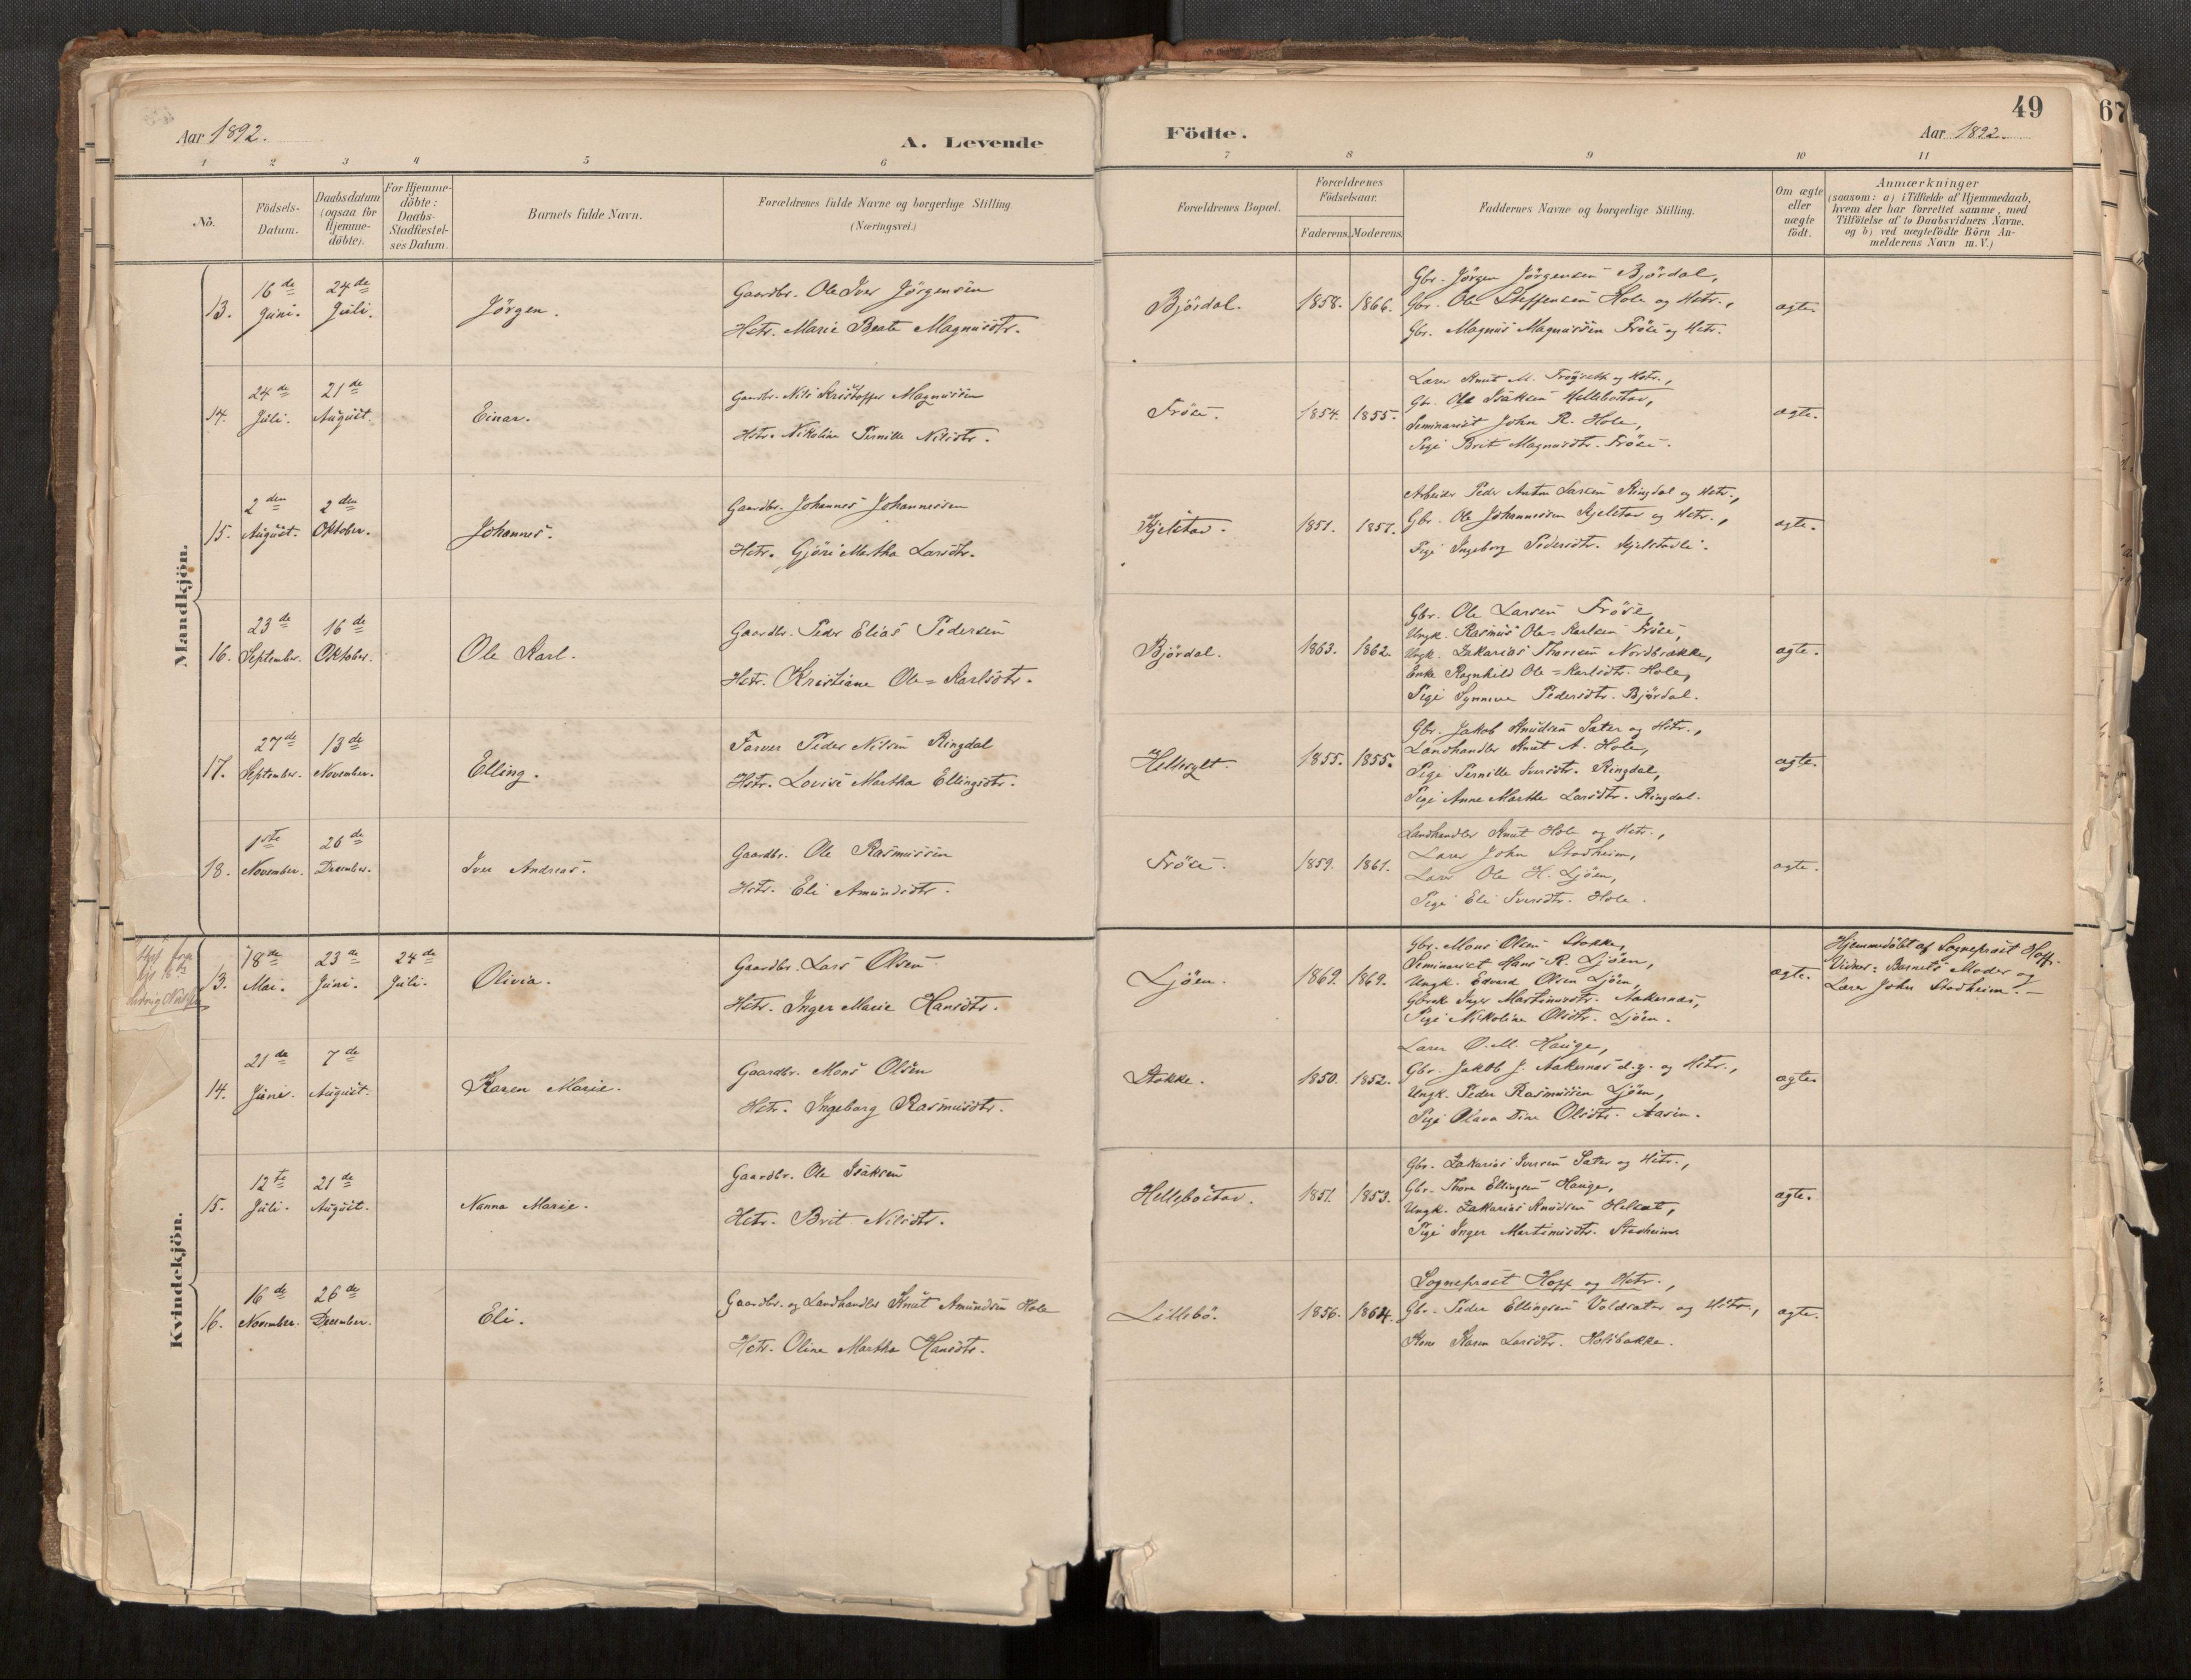 49
67
Aar 1892.
A. Levende
Födte.
Aar 1892.
1 2 3 4 5 6 7 8 9 10 11
No.
Födsels-
Datum.
Daabsdatum
(ogsaa for
Hjemme-
döbte).
For Hjemme-
döbte:
Daabs-
Stadfæstel-
ses Datum.
Barnets fulde Navn.
Forældrenes fulde Navne og borgerlige Stilling
(Næringsvei.)
Forældrenes Bopæl.
Forældrenes
Födselsaar.
Faderens. Moderens.
Faddernes Navne og borgerlige Stilling.
Om ægte
eller
uægte
födt.
Anmærkninger
(saasom: a) i Tilfælde af Hjemmedaab,
hvem der har forrettet samme, med
Tilföielse af to Daabsvidners Navne.
og b) ved uægtefödte Börn An-
melderens Navn m. V.)
Mandkjön.
13.
16de
Juni.
24de
Juli.
Jörgen.
Gaardbr. Ole Iver Jörgensen
Hstr. Marie Beate Magnusdtr.
Björdal.
1858. 1866.
Gbr. Jörgen Jörgensen Björdal,
Gbr. Ole Steffensen Hole og Hstr.,
Gbr. Magnus Magnussen Fröse og Hstr.
ægte.
14.
24de
Juli.
21de
August.
Einar.
Gaardbr. Nils Kristoffer Magnussen
Hstr. Nikoline Pernille Nilsdtr.
Fröse.
1854. 1855.
Lærer Knut M. Fröysedt og Hstr.,
Gbr. Ole Isaksen Hellebostad,
Seminarist John R. Hole,
Pige Brit Magnusdtr. Fröse.
ægte.
15.
2den
August.
2den
Oktober.
Johannes.
Gaardbr. Johannes Johannessen
Hstr. Gjöri Martha Larsdtr.
Kjelstad.
1851. 1857.
Arbeider Peder Anton Larsen Ringdal og Hstr.,
Gbr. Ole Johannessen Kjelstad og Hstr.,
Pige Ingeborg Pedersdtr. Kjelstadli.
ægte.
16.
23de
September.
16de
Oktober.
Ole Karl.
Gaardbr. Peder Elias Pedersen
Hstr. Kristiane Ole-Karlsdtr.
Björdal.
1863. 1862.
Gbr. Ole Larsen Fröse,
Ungk. Rasmus Ole-Karlsen Fröse,
Ungk. Zakarias Thoresen Nordbrække,
Enke Ragnhild Ole-Karlsdtr. Hole,
Pige Synneva Pedersdtr. Björdal.
ægte.
17.
27de
September.
13de
November.
Elling.
Farver Peder Nilsen Ringdal
Hstr. Lovise Martha Ellingsdtr.
Hellesylt.
1855. 1855.
Gbr. Jakob Knudsen Sæter og Hstr.,
Landhandler Knut A. Hole,
Pige Pernille Iversdtr. Ringdal,
Pige Anne Marthe Larsdtr. Ringdal.
ægte.
18.
1ste
November.
26de
December.
Iver Andreas.
Gaardbr. Ole Rasmussen
Hstr. Eli Amundsdtr.
Fröse.
1859. 1861.
Landhandler Knut Hole og Hstr.,
Lærer John Stadheim,
Lærer Ole H. Ljöen,
Pige Eli Iversdtr. Hole.
ægte.
Kvindekjön.
13.
18de
Mai.
23de
Juni.
24de
Juli.
Olivia.
Gaardbr. Lars Olsen
Hstr. Inger Marie Hansdtr.
Ljöen.
1869. 1869.
Gbr. Mons Olsen Stokke,
Seminarist Hans R. Ljöen,
Ungk. Edvard Olsen Ljöen,
Gbrek. Inger Martinusdtr. Aakernes,
Pige Nikoline Olsdtr. Ljöen.
ægte.
Hjemmedöbt af Sogneprest Hoff.
Vidner: Barnets Moder og
Lærer John Stadheim.
14.
21de
Juni.
7de
August.
Karen Marie.
Gaardbr. Mons Olsen
Hstr. Ingeborg Rasmusdtr.
Stokke.
1850. 1852.
Lærer O. M. Hauge,
Gbr. Jakob J. Aakernes d.y. og Hstr.,
Ungk. Peder Rasmussen Ljöen,
Pige Olava Dine Olsdtr. Aasen.
ægte.
15.
12te
Juli.
21de
August.
Nanna Marie.
Gaardbr. Ole Isaksen
Hstr. Brit Nilsdtr.
Hellebostad.
1851. 1853.
Gbr. Zakarias Iversen Sæter og Hstr.,
Gbr. Thore Ellingsen Hauge,
Ungk. Zakarias Knudsen Helsæt,
Pige Inger Martinusdtr. Stadheim.
ægte.
16.
16de
November.
26de
December.
Eli.
Gaardbr. og Landhandler Knut Amundsen Hole
Hstr. Oline Martha Hansdtr.
Lillebö.
1856. 1864.
Sogneprest Hoff og Hstr.,
Gbr. Peder Ellingsen Voldsæter og Hstr.,
Kone Karen Larsdtr. Holsbakke.
ægte.